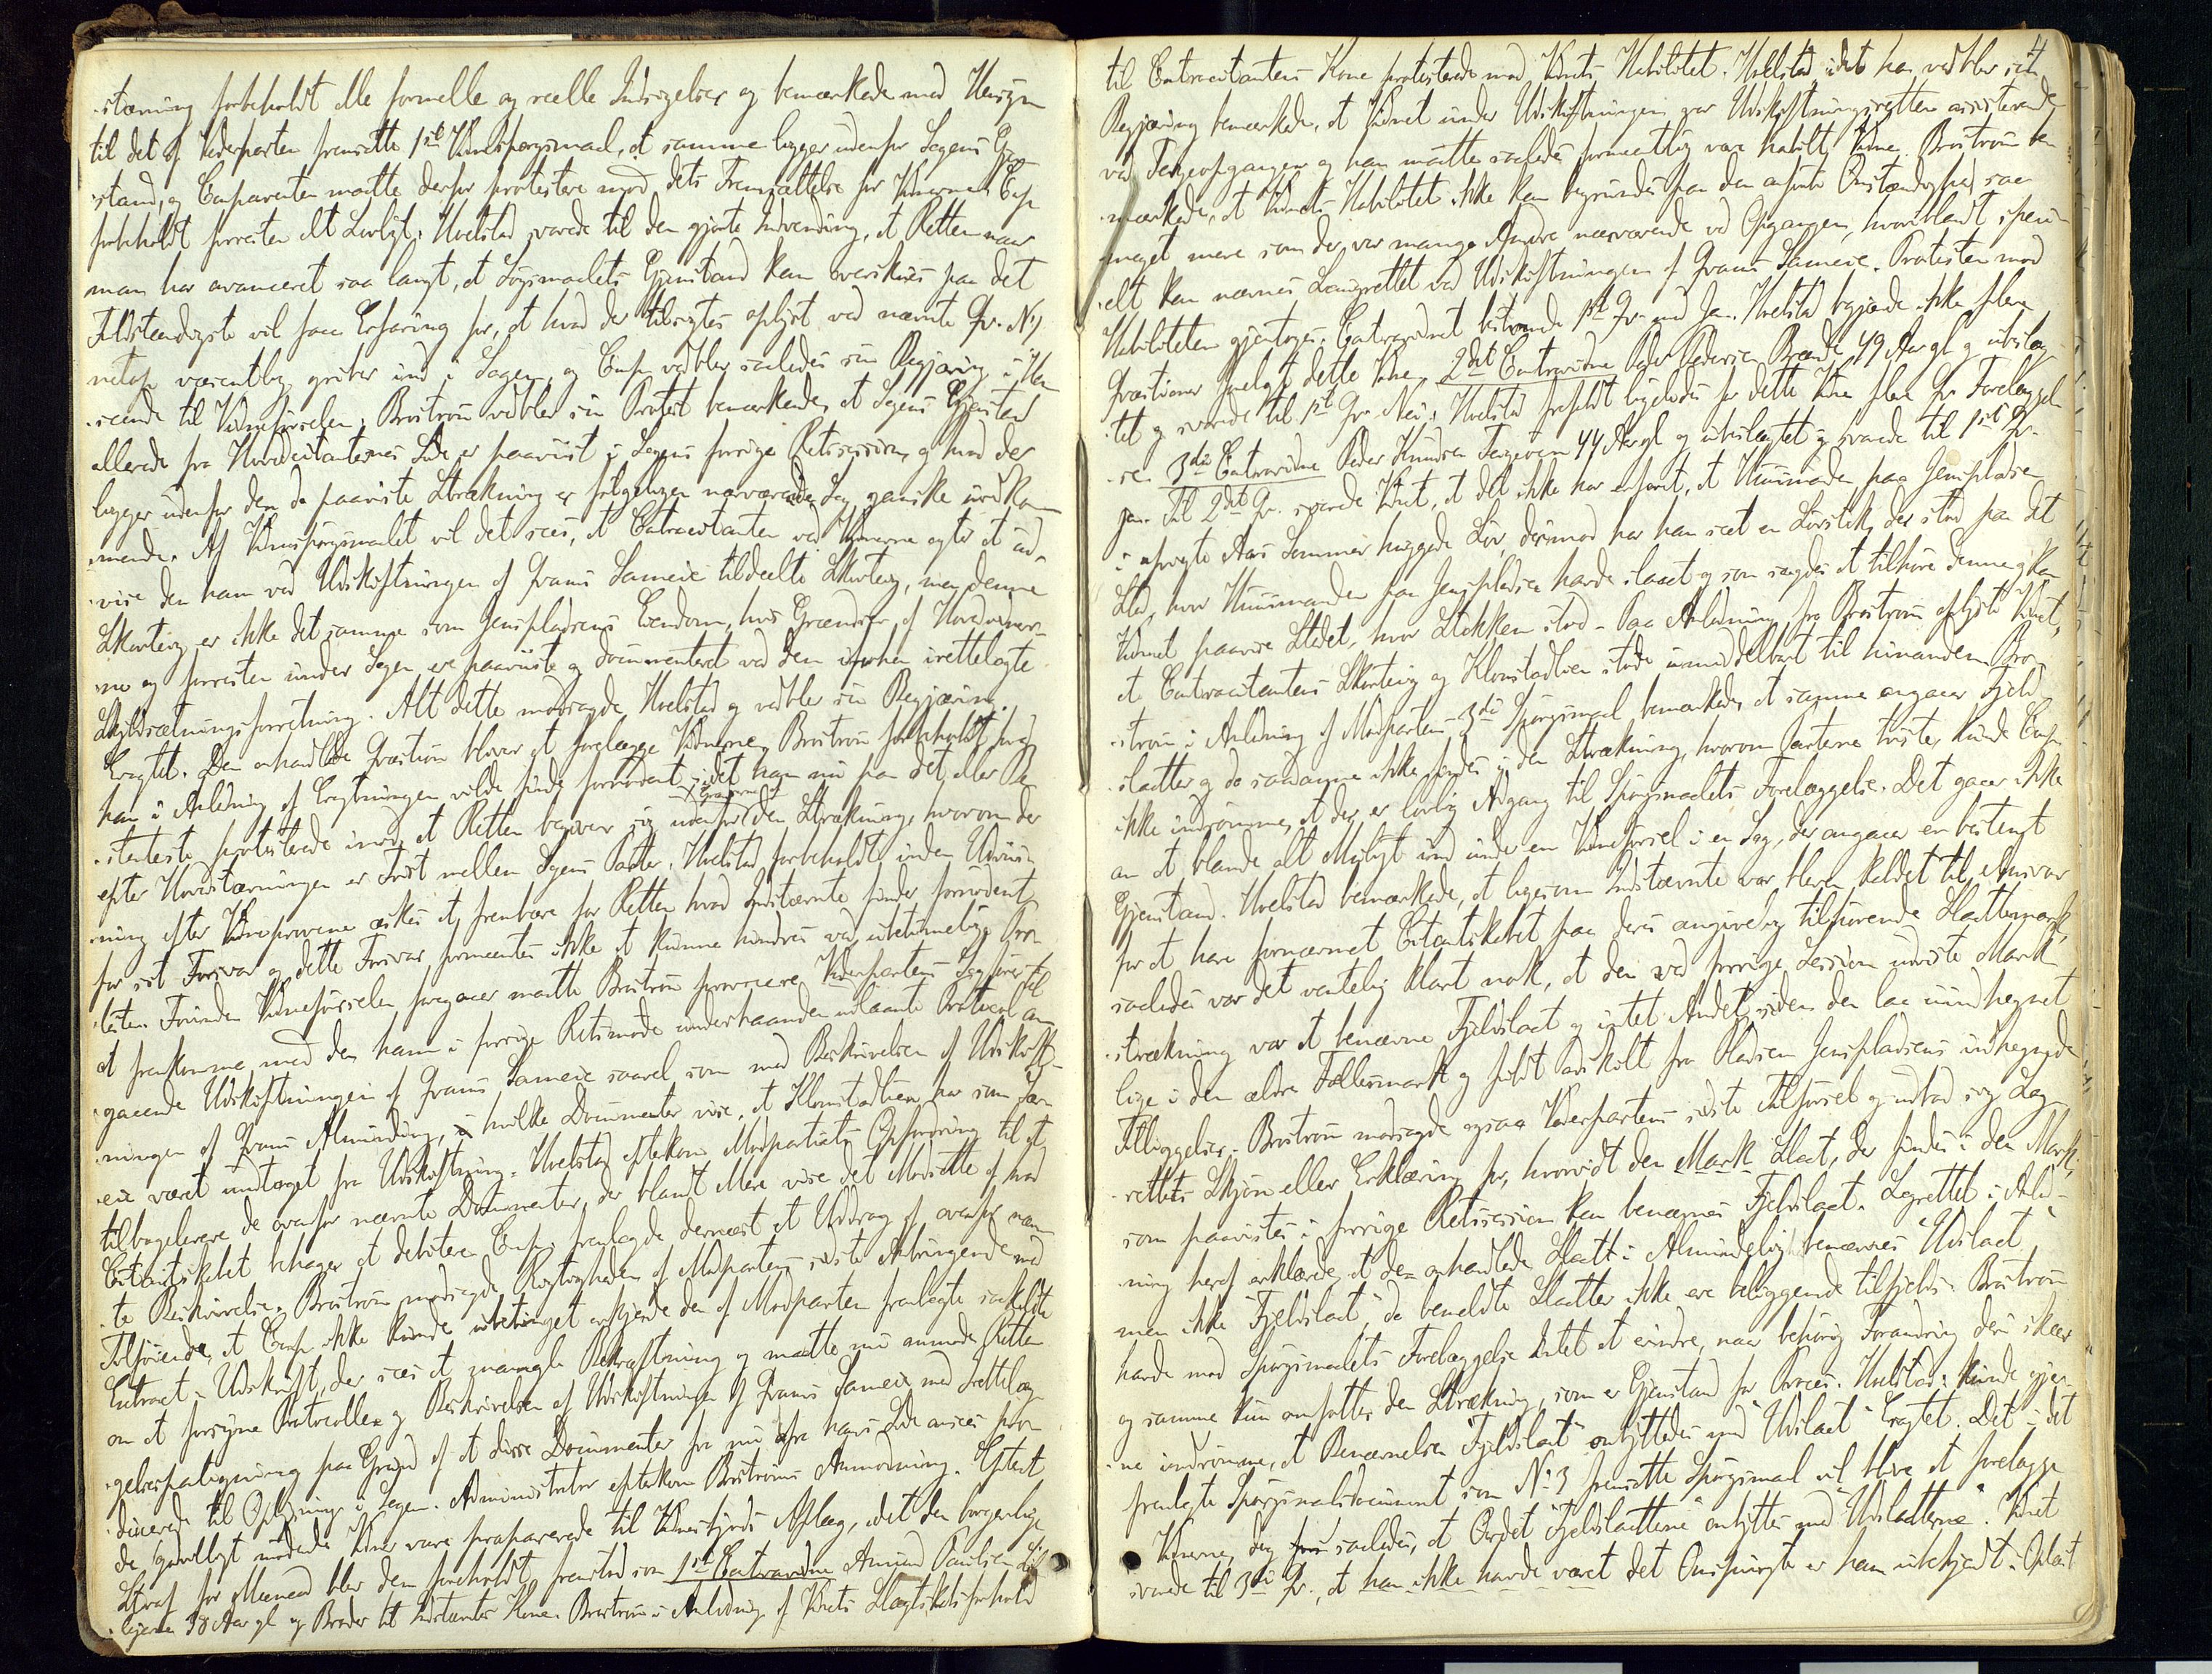 stævning forbeholdt alle formelle og reelle Indsigelser og bemærkede med Hensyn
til det af Vederparten fremsatte 1ste Vidnespørgsmaal, at samme ligger udenfor Sagens Gjen-
stand, og Comparenten maatte derfor protestere mod dets Fremsættelse for Vidnerne. Comp.
forbeholdt forresten Alt Lovligt. Hvelstad svarede til den gjorte Indvending, at Retten naar
man har avanceret saa langt, at Søgsmaalets Gjenstand kan overskues paa det
Fuldstændigste vil faae Erfaring for, at hvad der tilsigtes oplyst ved nævnte Qv. No 1
netop væsentlig griber ind i Sagen, og Comp. vedblev saaledes sin Begjæring i Hen-
seende til Vidneførselen. Brostrøm vedblev sin Protest bemærkende, at Sagens Gjenstand
allerede fra Hovedcitanternes Side er paaviist i Sagens forrige Retssession, og hvad der
ligger udenfor den da paaviste Strækning er følgeligen nærværende Sag ganske uvedkom-
mende. Af Vidnespørgsmaalet vil det sees, at Contracitanten ved Vidnerne agter at ud-
vise den ham ved Udskiftningen af Grans Sameie tildeelte Skovteig, men denne
Skovteig er ikke det samme som Jenspladsens Eiendom, hvis Grændser af Hovedvidner-
ne og forresten under Sagen ere paaviste og documenteret ved den irettelagte
Skyldsætningsforretning. Alt dette modsagde Hvelstad og vedblev sin Begjæring.
Eragtet. Den omhandlede Qvæstion bliver at forelægge Vidnerne. Brostrøm forbeholdt hvad
han i Anledning af Eragtningen vilde finde fornødent, idet han nu paa det Be-
stemteste protesterede imod, at Retten begiver sig udenfor Grændserne af den Strækning, hvorom der
efter Hovedstævningen er Tvist mellem Sagens Parter. Hvelstad forbeholdt inden Udviis-
ning efter Vidneprovene æskes at frembære for Retten hvad Indstævnte finder fornødent
for sit Forsvar og dette Forsvar formentes ikke at kunne hindres ved ubetimelige Pro-
tester. Forinden Vidneførselen foregaaer maatte Brostrøm provocere Vederpartens Sagfører til
at fremkomme med den ham i forrige Retsmøde underhaanden udlaante Protocol an-
gaaende Udskiftningen af Grans Sameie saavel som med Beskrivelsen af Udskift-
ningen af Grans Almínding, hvilke Documenter vise, at Klomstadlien har som Sær-
eie været undtaget fra Udskiftning. Hvelstad efterkom Modpartiets Opfordring til at
tilbagelevere de ovenfor nævnte Documenter, der blandt Mere vise det Modsatte af hvad
Citantskabet behager at debitere. Comp. fremlagde dernæst et Uddrag af ovenfor nævn-
te Beskrivelse. Brostrøm modsagde Rigtigheden af Modpartens sidste Anbringende med
Tilføiende, at Comp. ikke kunde ubetinget erkjende den af Modparten fremlagte saakaldte
Extract-Udskrift, der sees at mangle Bekræftning og maatte nu anmode Retten
om at forsyne Protocollen og Beskrivelsen af Udskiftningen af Grans Sameie med Irettelæg-
gelsespaategning paa Grund af at disse Documenter fra nu af fra hans Side ansees pro-
ducerede til Oplysning i Sagen. Administrator efterkom Brostrøms Anmodning. Efterat
de godvilligt mødende Vidner vare præparerede til Vidnesbyrds Aflæg, idet den borgerlige
Straf for Meened blev dem foreholdt, fremstod som 1ste Contravidne Amund Paulsen
38 Aar gl. og Broder til Indstævntes Kone. Brostrøm i Anledning af Vidnets Slægtskabsforhold
4
til Contracitantens Kone protesterede mod Vidnets Habilitet. Hvelstad idet han vedblev sin
Begjæring bemærkede, at Vidnet under Udskiftningen var Udskiftningsretten assisterende
ved Teigeopgangen og han maatte saaledes formeentlig være habilt Vidne. Brostrøm be-
mærkede, at Vidnets Habilitet ikke kan begrundes paa den anførte Omstændighed saa
meget mere som der var mange Andre nærværende ved Opgangen, hvoriblandt speci-
elt kan nævnes Laugrettet ved Udskiftningen af Grans Sameie. Protesten mod
Habiliteten gjentoges. Contravidnet besvarede 1ste Qv. med Ja. Hvelstad begjærede ikke flere
Qvæstioner forelagt dette Vidne. 2det Contravidne Peder Pedersen Brænde, 49 Aar gl. og ubeslæg-
tet og svarede til 1ste Qv. Nei. Hvelstad frafaldt ligeledes for dette Vidne flere Qv. Forelæggel-
se. 3die Contravidne Peder Knudsen Teigeroen 44 Aar gl. og ubeslægtet og svarede til 1ste Qv.
Ja. Til 2det Qv. svarede Vidnet, at det ikke har erfaret, at Huusmanden paa Jenspladsen
i afvigte Aars Sommer huggede Løv, derimod har han seet en Løvstak, der stod paa det
Sted, hvor Huusmanden paa Jenspladsen havde slaaet og som sagdes at tilhøre denne og kan
Vidnet paavise Stedet, hvor Stakken stod. Paa Anledning fra Brostrøm oplyste Vidnet,
at Contracitantens Skovteig og Klomstadlien støde umiddelbart til hinanden. Bro-
strøm i Anledning af Modpartens 3die Spørgsmaal bemærkede, at samme angaaer Fjeld-
slatter og da saadanne ikke findes i den Strækning, hvorom Parterne tviste, kunde Comp.
ikke indrømme, at der er lovlig Adgang til Spørgsmaalets Forelæggelse. Det gaaer ikke
an at blande alt Muligt ind under en Vidneførsel i en Sag, der angaaer en bestemt
Gjenstand. Hvelstad bemærkede, at ligesom Indstævnte var bleven kaldet til Ansvar
for at have fornærmet Citantskabet paa deres angivelig tilhørende Slattemark,
saaledes var det ventelig klart nok, at den ved forrige Session udviste Mark-
strækning var at benævne Fjeldslaat og intet Andet, siden den laa uindhegnet
lige i den ældre Fællesmark og fuldt adskilt fra Pladsen Jenspladsens indhegnede
Tilliggelser. Brostrøm modsagde ogsaa Vederpartens sidste Tilførsel og udbad sig Lag-
rettets Skjøn eller Erklæring for, hvorvidt den Mark Slaat, der findes i den Mark,
som paavistes i forrige Retssession kan benævnes Fjeldslaat. Lagrettet i Anled-
ning heraf erklærede, at den omhandlede Slaatt i Almindelighed benævnes "Udslaat"
men ikke "Fjeldslaat", da bemeldte Slatter ikke ere beliggende tilfjelds. Brostrøm
havde mod Spørgsmaalets Forelæggelse Intet at erindre, naar behørig Forandring deri skeer
og samme kun omfatter den Strækning, som er Gjenstand for Proces. Hvelstad kunde gjer-
ne indrømme, at Benævnelsen "Fjeldslaat" ombyttedes med "Udslaat". Eragtet. Det i det
fremlagte Spørgsmaalsdocument som No 3 fremsatte Spørgsmaal vil blive at forelægge
Vidnerne, dog saaledes, at Ordet "Fjeldslaatterne" ombyttes med "Udslatterne". Vidnet
svarede til 3die Qv., at han ikke havde været det Omspurgte er ham ubekjendt. Oplæst